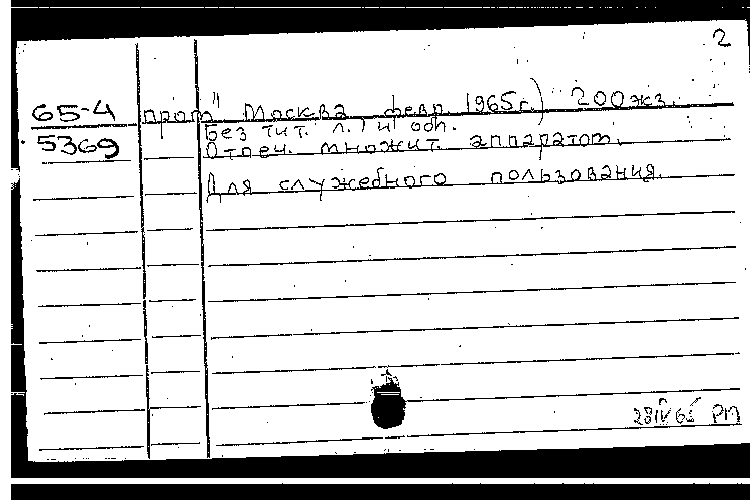 2
65-4 пром" Москва февр. 1965г.) 200экз.
Без тит. л. и обл.
5369 Отпеч. множит. аппаратом.
Для служебного пользования.
28IV65 РМ